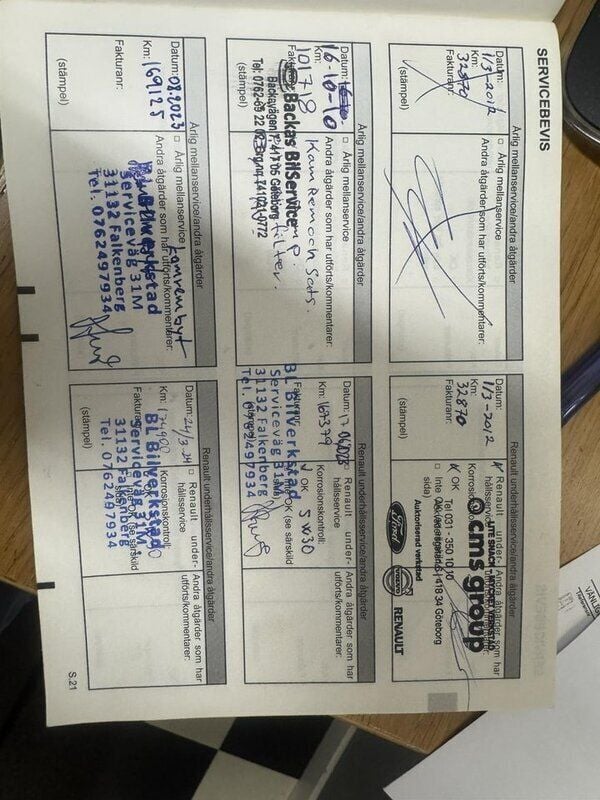 SERVICEBEVIS
Årlig mellanservice/andra åtgärder
Datum:
1/3-2012
Km:
32870
Fakturanr:
(stämpel)
Årlig mellanservice
Andra åtgärder som har utförts/kommentarer:
Renault underhållsservice/andra åtgärder
Datum:
1/3-2012
Km:
32870
Fakturanr:
(stämpel)
Renault under-
hållsservice
Korrosionskontroll:
OK
Inte OK (se särskild
sida)
Andra åtgärder som har
utförts/kommentarer:
LITE SNACK - MYCKET VERKSTAD
cms group
Tel 031 - 350 10 10
418 34 Göteborg
Auktoriserad verkstad
Ford
VOLVO
RENAULT
Årlig mellanservice/andra åtgärder
Datum:
16-10-10
Km:
101718
Årlig mellanservice
Andra åtgärder som har utförts/kommentarer:
Kamrem och Sats.
filter.
Backas BilService
Backavägen
Göteborg
Tel: 0762-69 22 02
(stämpel)
Renault underhållsservice/andra åtgärder
Datum:
Km:
Fakturanr:
(stämpel)
Renault under-
hållsservice
Korrosionskontroll:
OK
5W30
Inte OK (se särskild
Andra åtgärder som har
utförts/kommentarer:
BL Bilverkstad
Serviceväg 31M
31132 Falkenberg
Tel. 0762497934
Årlig mellanservice/andra åtgärder
Datum: 08.2023
Km: 169125
Fakturanr:
(stämpel)
Årlig mellanservice
Andra åtgärder som har utförts/kommentarer:
kamrembyt
Serviceväg 31M
31132 Falkenberg
Tel. 0762497934
Renault underhållsservice/andra åtgärder
Datum: 24/3-24
Km:
Fakturanr:
(stämpel)
Renault under-
hållsservice
Korrosionskontroll:
Andra åtgärder som har
utförts/kommentarer:
BL Bilverkstad
Serviceväg 31M
31132 Falkenberg
Tel. 0762497934
S.21